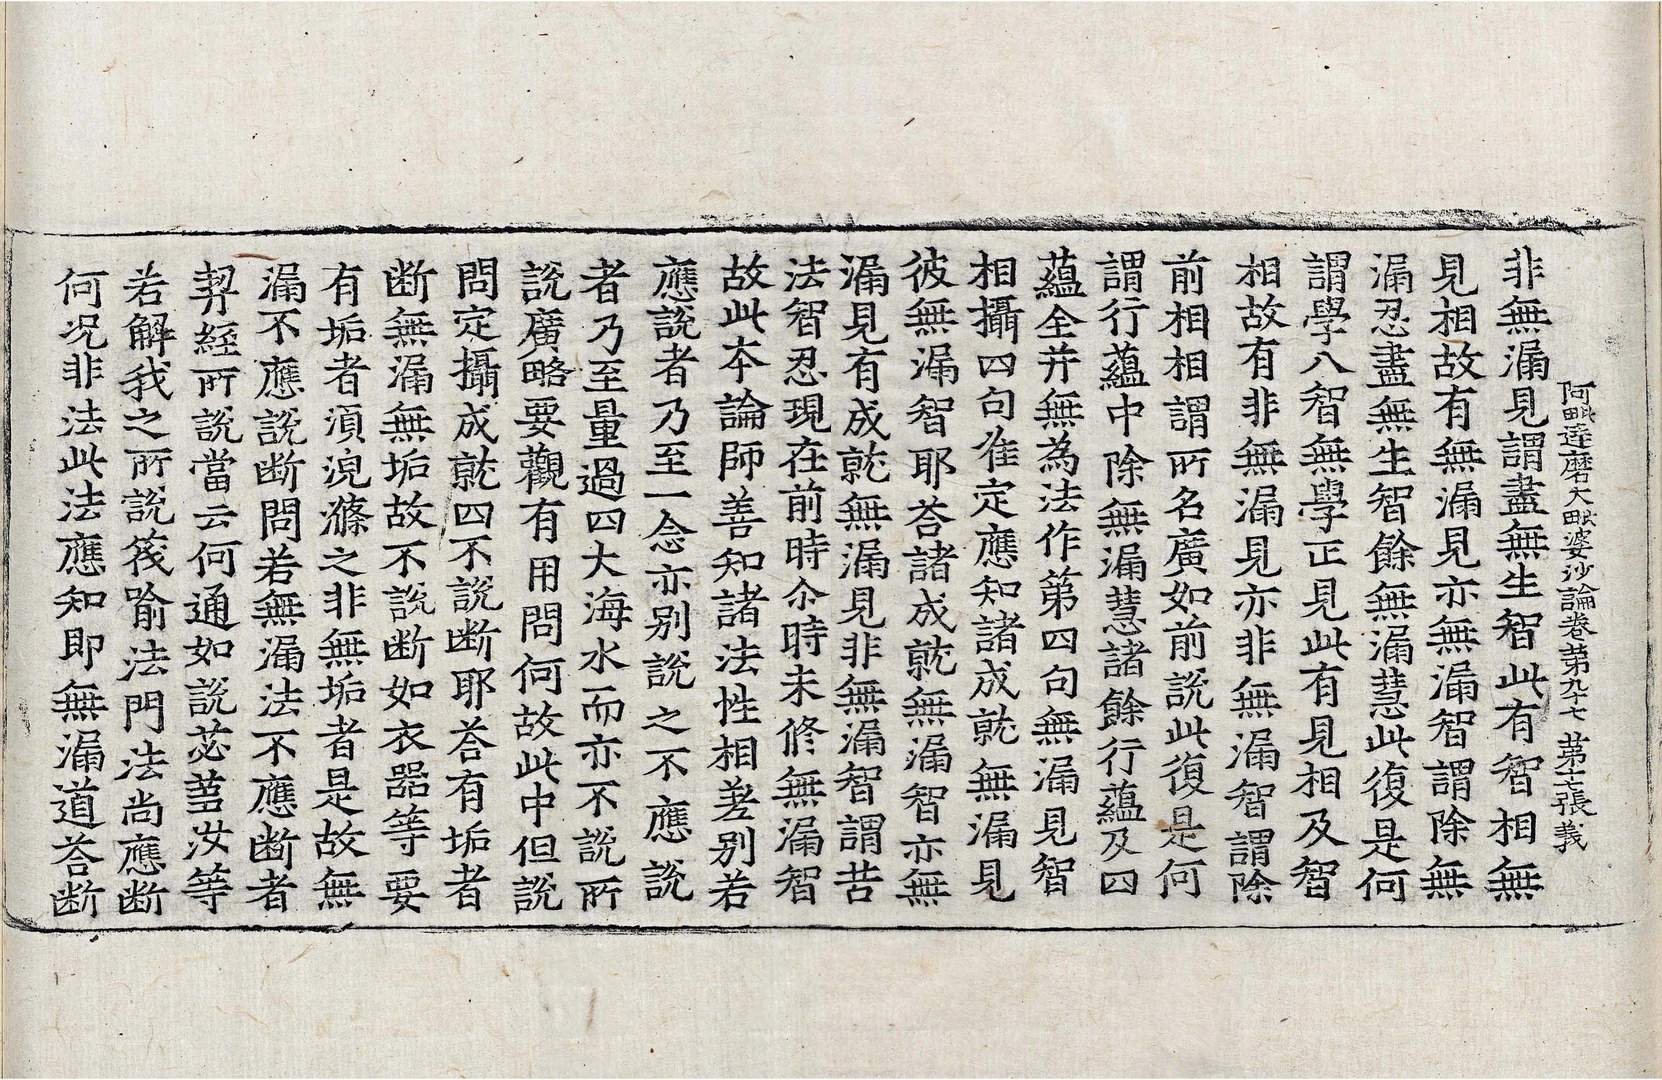 阿毗達磨大毗婆沙論卷第九十七 第十七張 義
非無漏見謂盡無生智此有智相無
見相故有無漏見亦無漏智謂除無
漏忍盡無生智餘無漏慧此復是何
謂學八智無學正見此有見相及智
相故有非無漏見亦非無漏智謂除
前相相謂所名廣如前說此復是何
謂行蘊中除無漏慧諸餘行蘊及四
蘊全并無為法作第四句無漏見智
相攝四句准定應知諸成就無漏見
彼無漏智耶荅諸成就無漏智亦無
漏見有成就無漏見非無漏智謂苦
法智忍現在前時尒時未修無漏智
故此本論師善知諸法性相差別若
應說者乃至一念亦別說之不應說
者乃至量過四大海水而亦不說所
說廣略要觀有用問何故此中但說
問定攝成就四不說断耶荅有垢者
断無漏無垢故不說断如衣器等要
有垢者湏浣滌之非無垢者是故無
漏不應說断問若無漏法不應断者
契經所說當云何通如說苾蒭汝等
若解我之所說筏喻法門法尚應断
何况非法此法應知即無漏道荅断